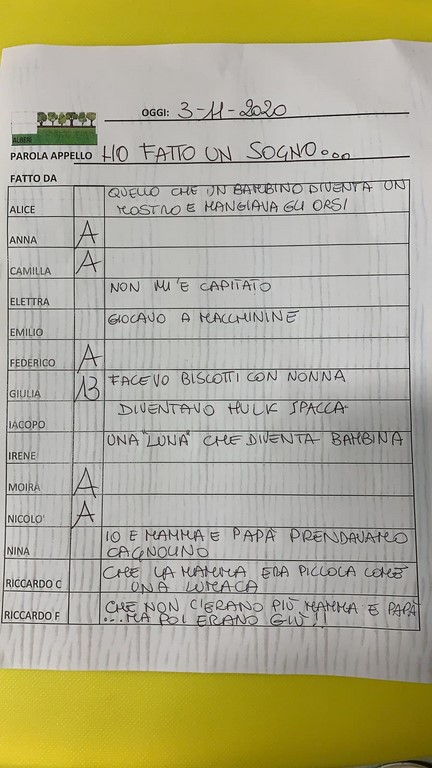 ALBERI
OGGI: 3-11-2020
PAROLA APPELLO HO FATTO UN SOGNO...
FATTO DA
QUELLO CHE UN BAMBINO DIVENTA UN
ALICE MOSTRO E MANGIAVA GLI ORSI
ANNA A
CAMILLA A
ELETTRA NON MI E' CAPITATO
EMILIO GIOCAVO A MACCHININE
FEDERICO A
GIULIA 13 FACEVO BISCOTTI CON NONNA
IACOPO DIVENTAVO HULK SPACCA
IRENE UNA "LUNA" CHE DIVENTA BAMBINA
MOIRA A
NICOLO' A
IO E MAMMA E PAPÀ PRENDAVAMO
NINA CAGNOLINO
CHE LA MAMMA ERA PICCOLA COME
RICCARDO C UNA LUMACA
CHE NON C'ERANO PIÙ MAMMA E PAPÀ
RICCARDO F ...MA POI ERANO GIÙ!!